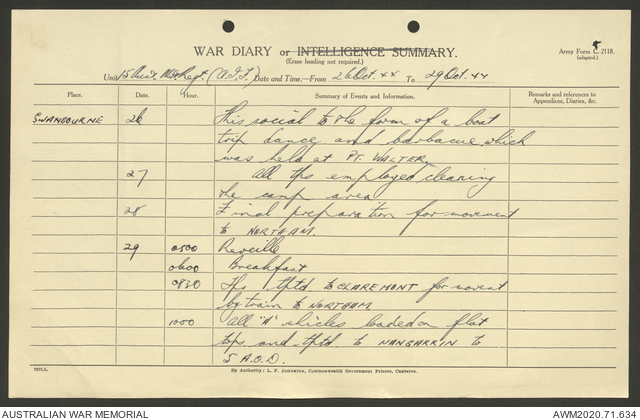 WAR DIARY or INTELLIGENCE SUMMARY.
(Erase heading not required.)
Army Form C. 2118.
(adapted.)
Unit 15 Aust. Regt (A.I.F.) Date and Time.—From 26 Oct. 44 To 29 Oct. 44
Place. Date. Hour. Summary of Events and Information. Remarks and references to Appendices, Diaries, &c.
SWANBOURNE 26 This social to the form of a boat
trip dance and barbacue which
was held at PT. WALTER.
27 All tps employed cleaning
the camp area
28 Final preparation for movement
to NORTHAM.
29 0500 Reveille
0600 Breakfast
0830 Tps tptd. to CLAREMONT for movent
by train to NORTHAM
1000 All "A" vhicles loaded on flat
tops and tptd. to NANGARRIN to
5 A.O.D.
7872.L.
By Authority: L. F. JOHNSTON, Commonwealth Government Printer, Canberra.
AUSTRALIAN WAR MEMORIAL
AWM2020.71.634